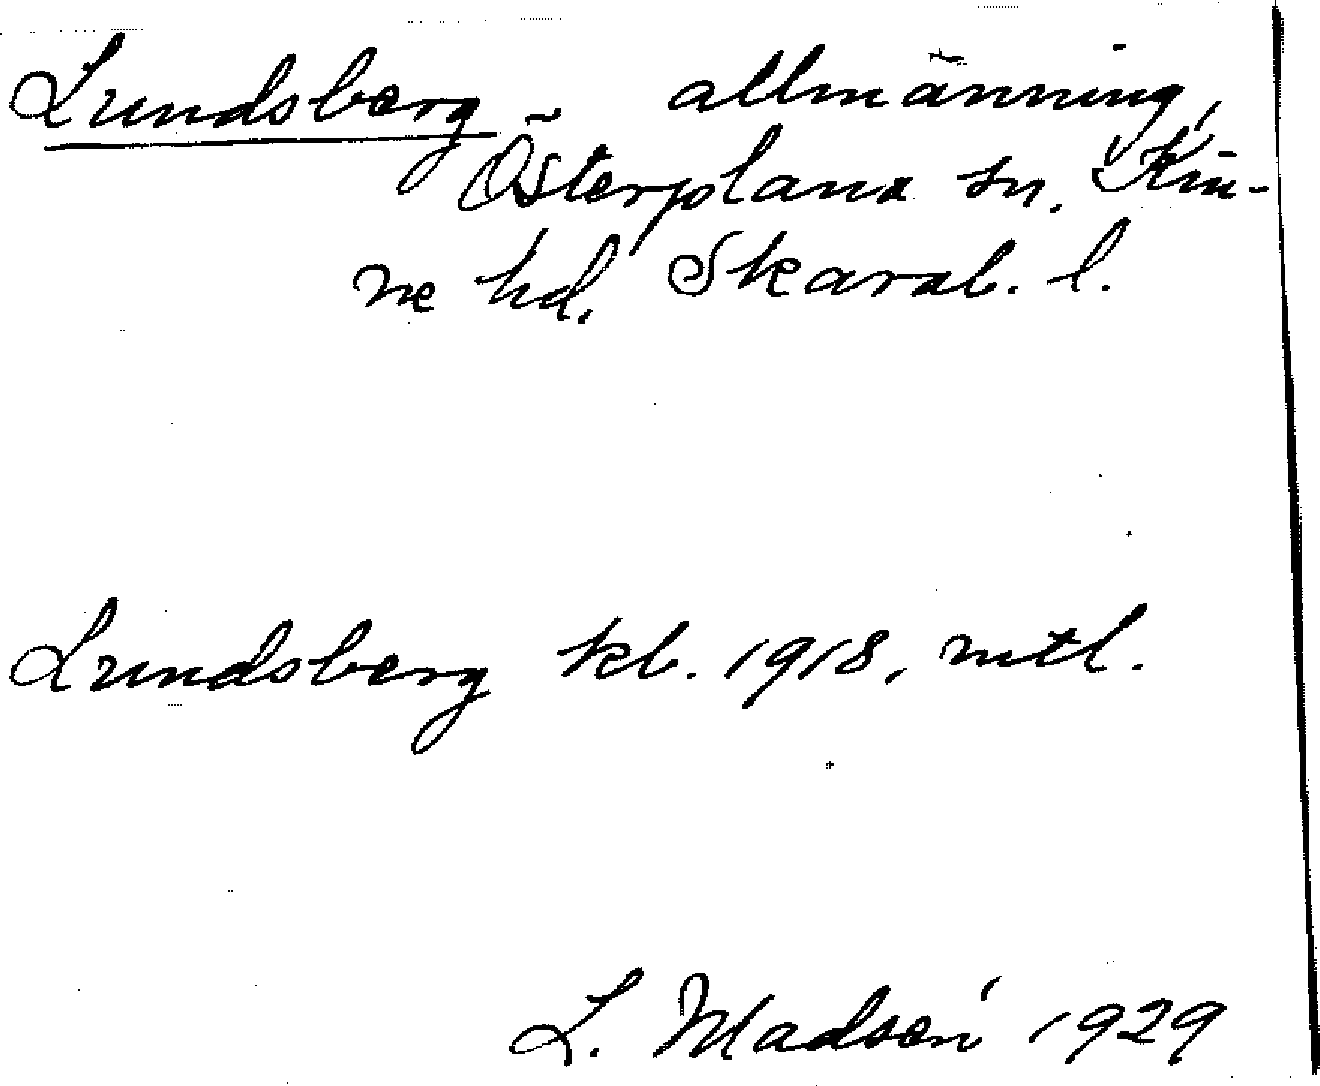 Lundsberg allmänning,
Österplana sn. Kin-
ne hd. Skarab. l.
Lundsberg kb. 1918, mtl.
L. Madsén 1929